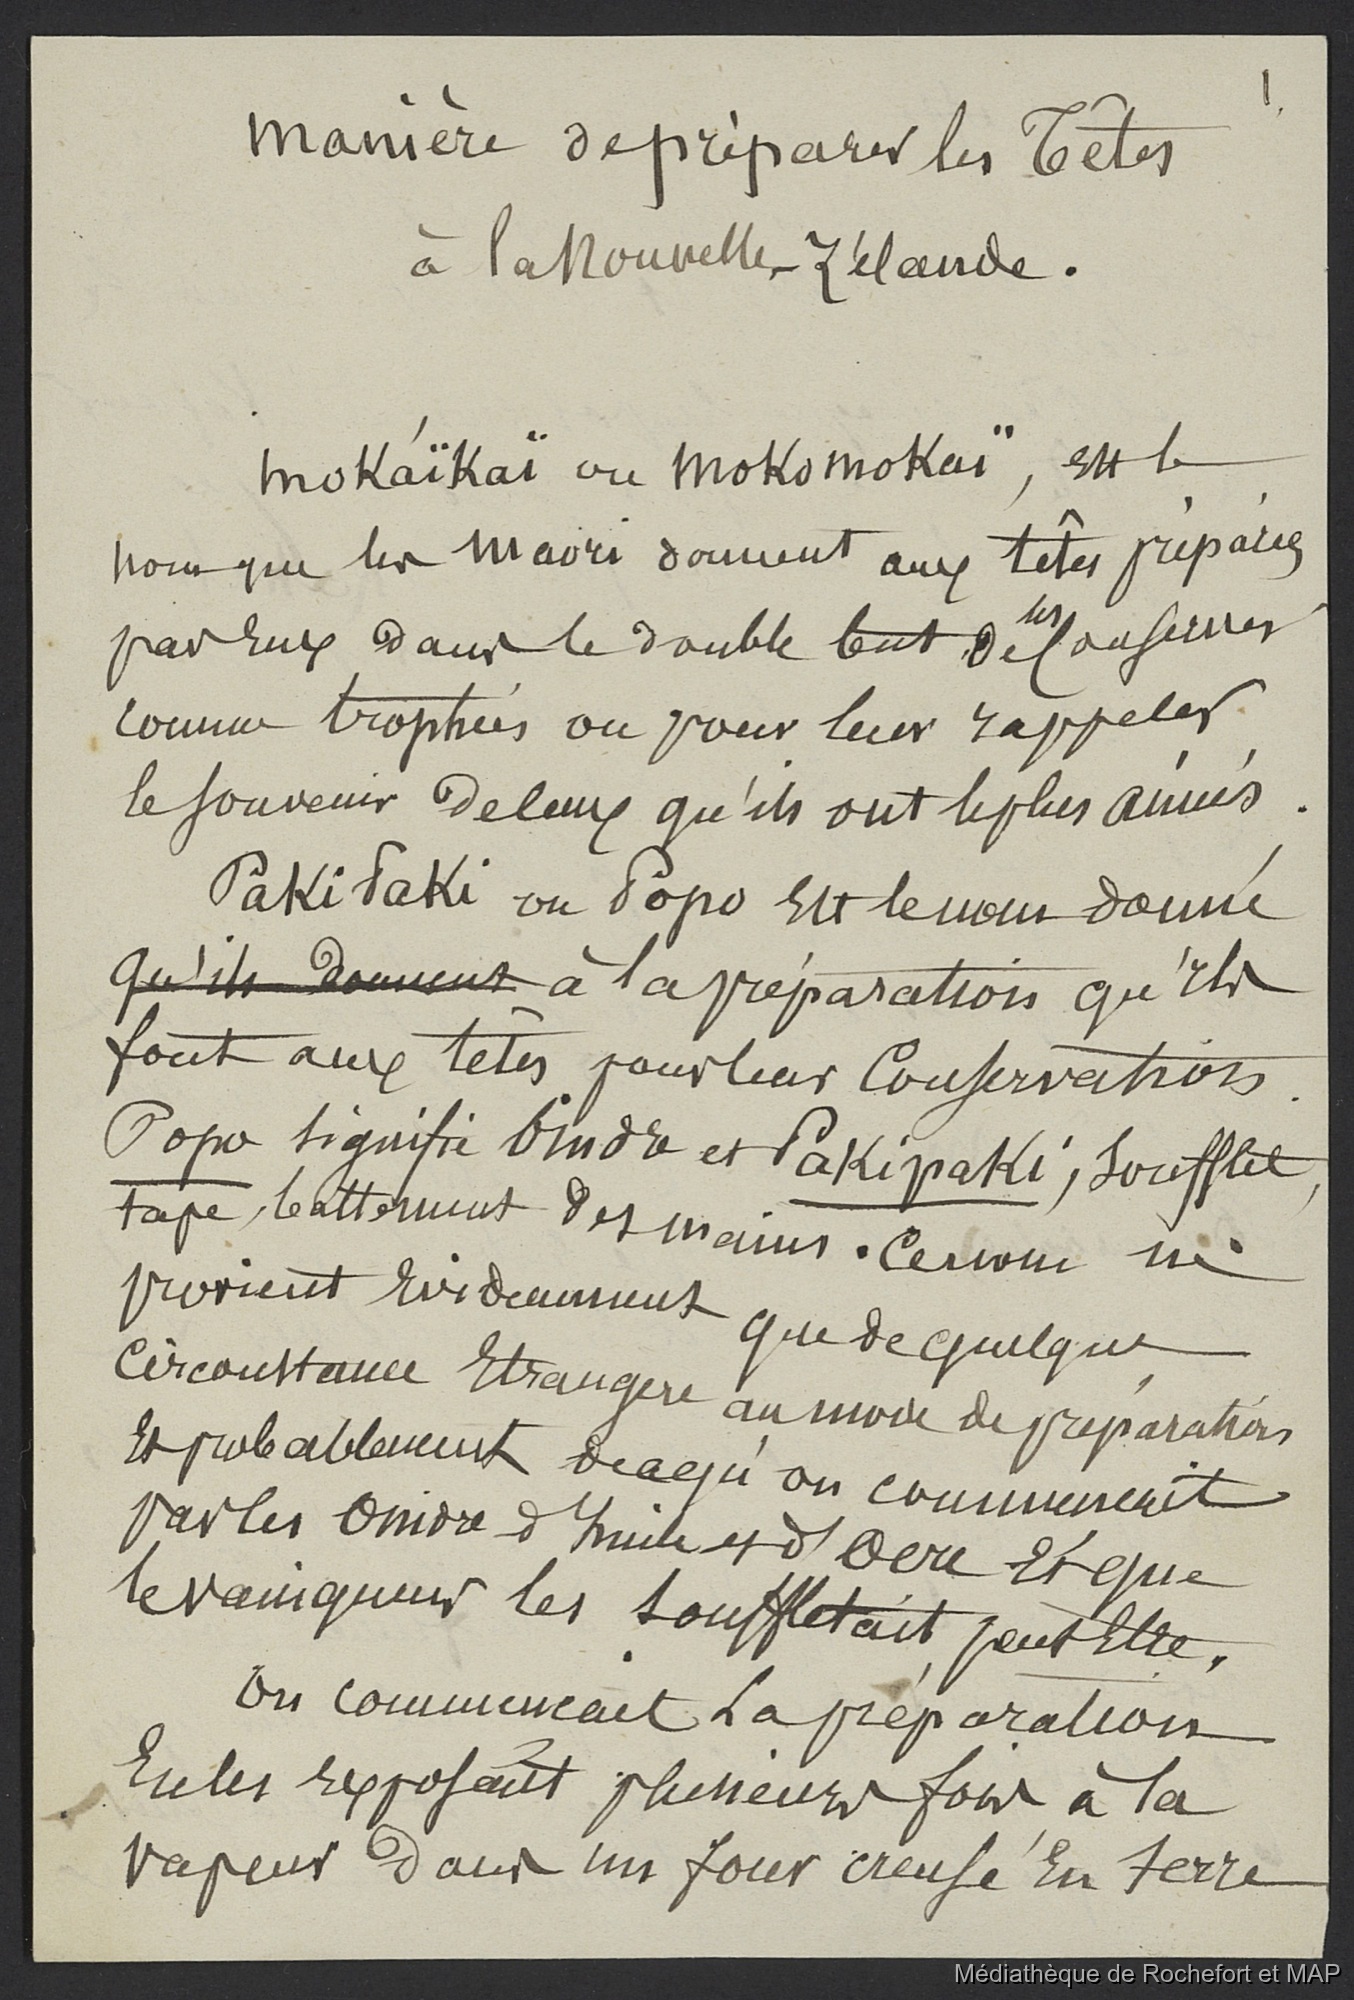 1.
Manière de préparer les Têtes
à la Nouvelle-Zélande.
Mokáïkaï ou Mokomokaï, est le
nom que les Maori donnent aux têtes préparées
par Eux dans le double but de les Conserver
comme trophées ou pour leur rappeler
le souvenir de Ceux qu'ils ont le plus aimés.
Paki Paki ou Popo Est le nom donné
qu'ils donnent à la préparation qu'ils
font aux têtes pour leur Conservation.
Popo signifie Oindre et Pakipaki, soufflet,
tape, battement des mains. Ce nom ne
provient Evidemment que de quelque
Circonstance Etrangere au mode de préparation
Et probablement de ce qu'on commencait
par les Oindre d'huile et d'Ocre Et que
le vainqueur les souffletait peut Etre.
On commencait La préparation
En les Exposant plusieurs fois à la
vapeur dans un four creusé En terre
Médiathèque de Rochefort et MAP